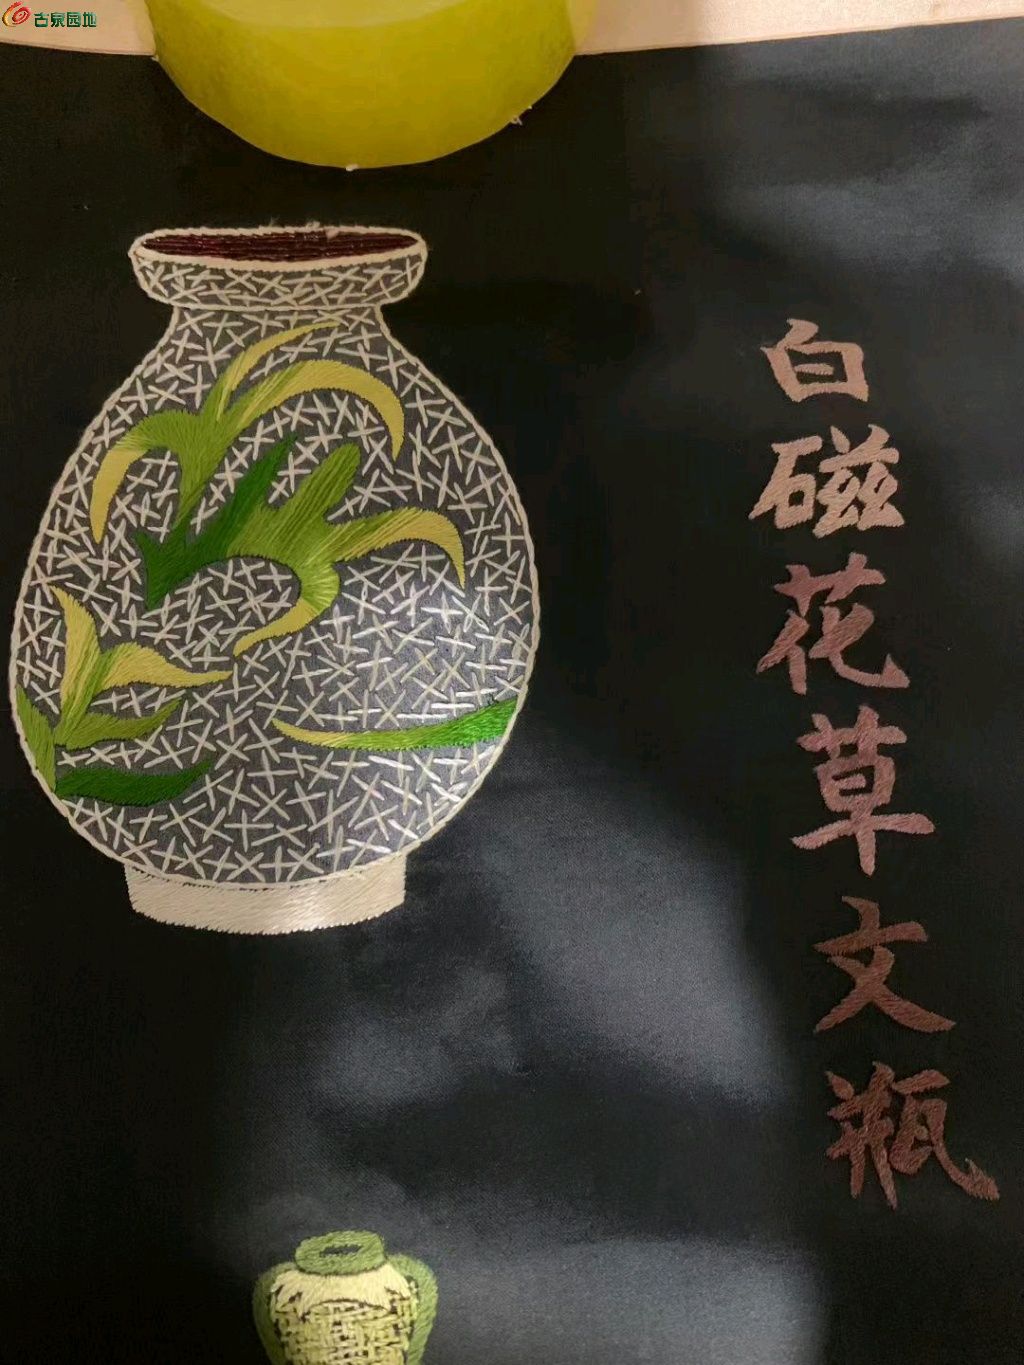 古泉园地
白磁花草文瓶